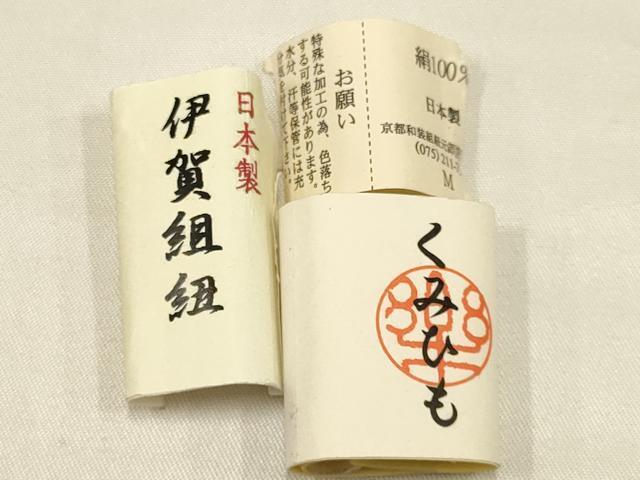 日本製
伊賀組紐
お願い
特殊な加工の為、色落ち
する可能性があります。
水分、汗等保管には充
絹100%
日本製
京都和装組紐元
(075)211-
M
くみひも